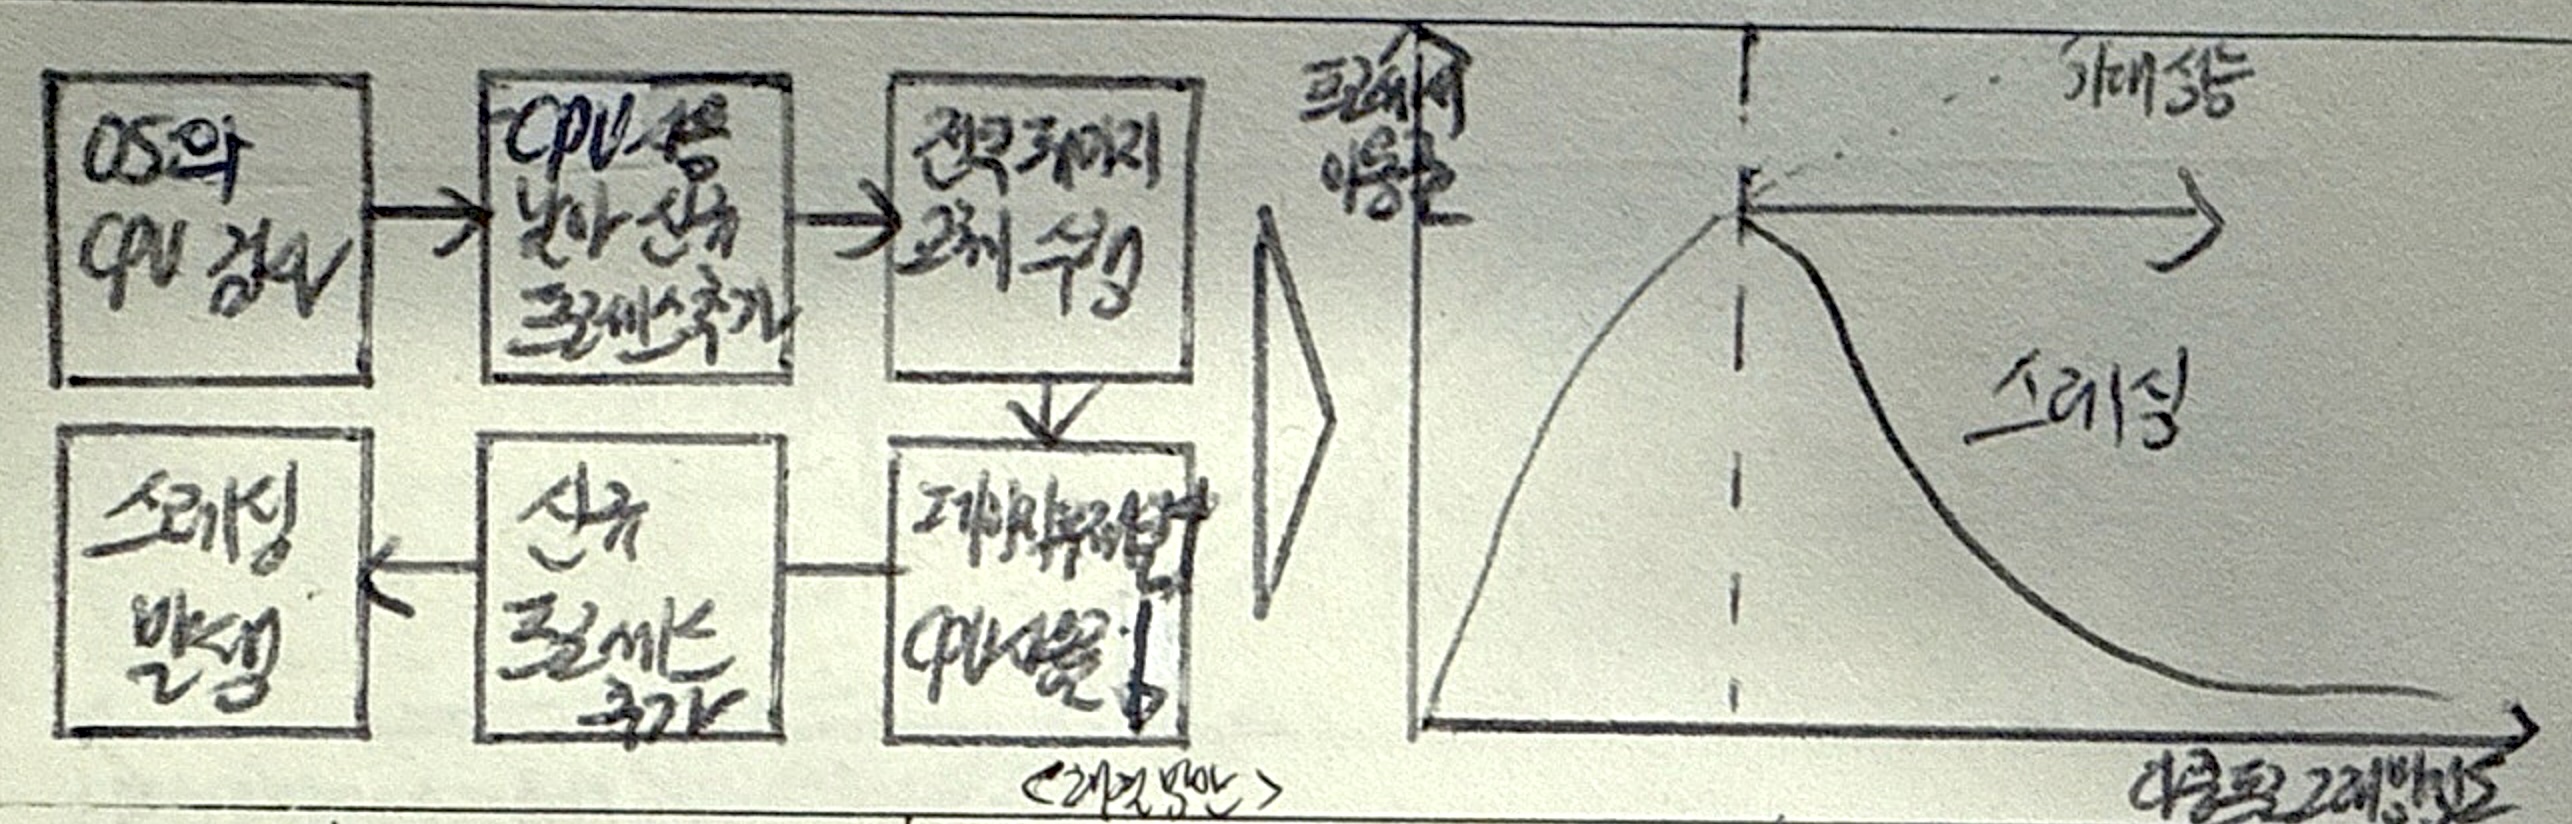 OS의
CPU 검사
CPU 사용
낮아 신규
프로세스 추가
전역 페이지
교체 수행
페이지 부재 발생
CPU 사용률 ↓
신규
프로세스
추가
스레싱
발생
프로세서
이용률
기대 성능
스레싱
다중 프로그래밍 정도
<해결 방안>